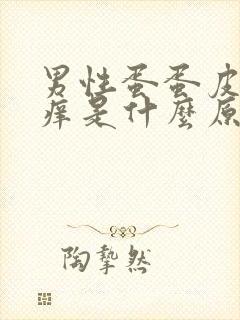 男性蛋蛋皮
痒是什麼原
陶摯然